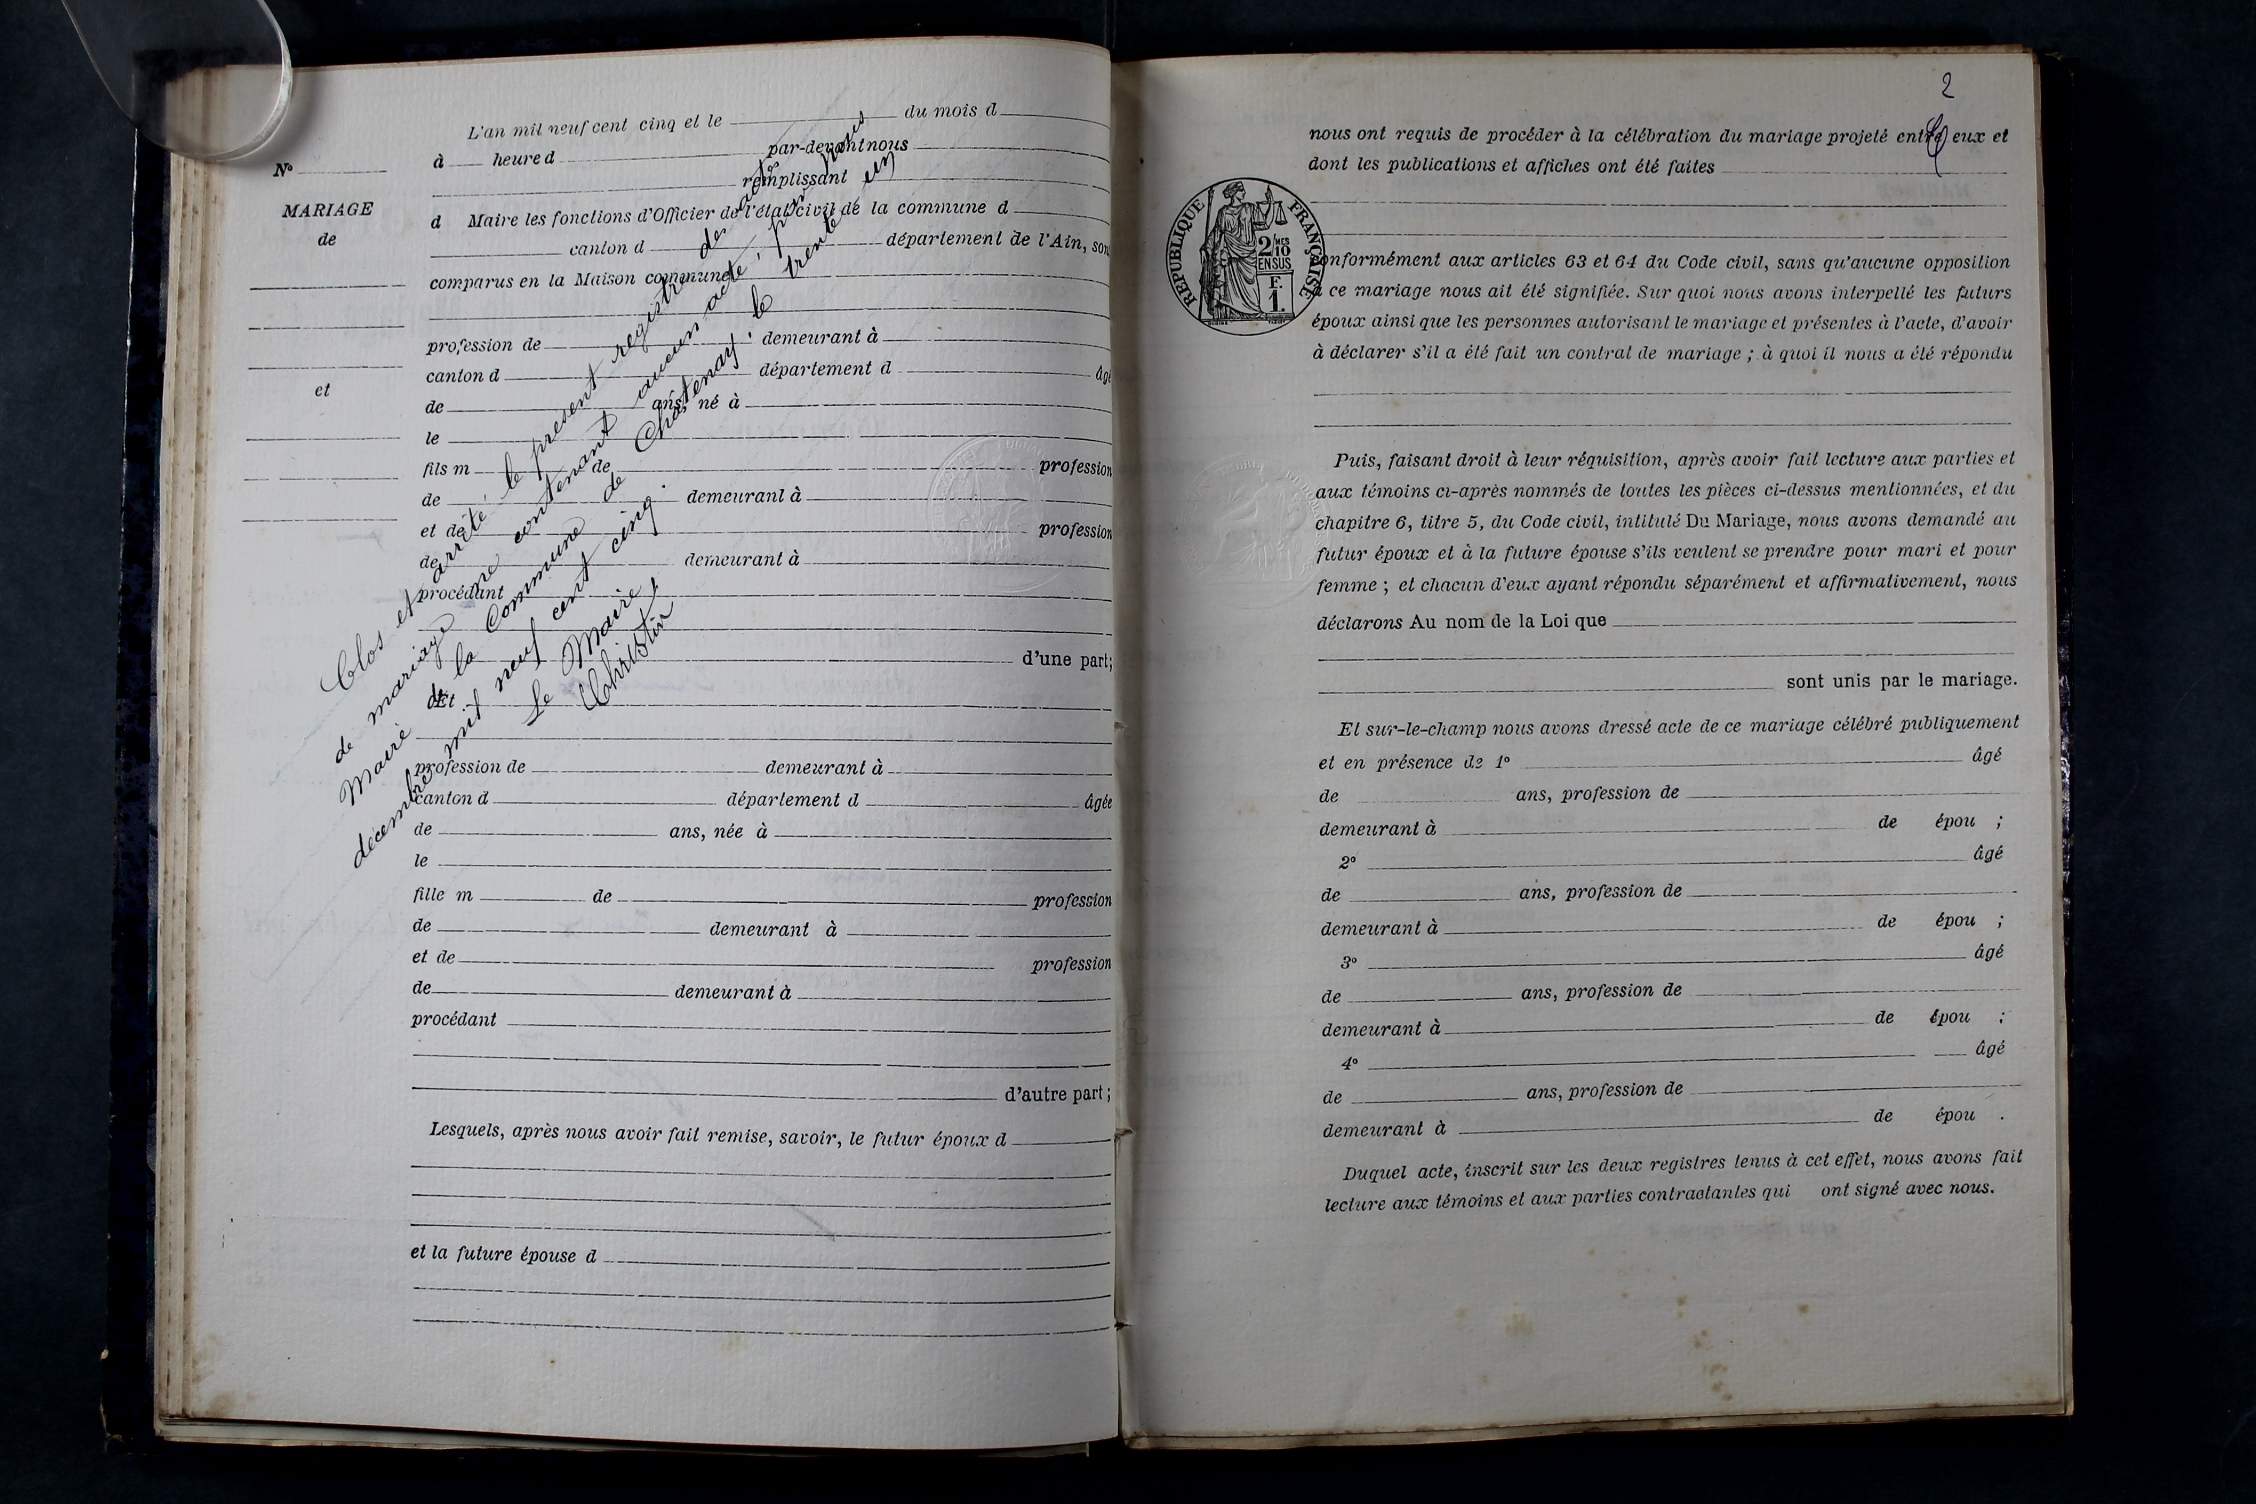 L'an mil neuf cent cinq et le du mois d
à heure d par-devant nous
remplissant
d Maire les fonctions d'Officier de l'état civil de la commune d
canton d département de l'Ain, sont
comparus en la Maison commune
profession de demeurant à
canton d département d âgé
de ans, né à
le
fils m de profession
de demeurant à
et de profession
de demeurant à
procédant
d'une part;
Et
profession de demeurant à
canton d département d âgée
de ans, née à
le
fille m de profession
de demeurant à
et de profession
de demeurant à
procédant
d'autre part;
Lesquels, après nous avoir fait remise, savoir, le futur époux d
et la future épouse d
No
MARIAGE
de
et
Clos et arrêté le présent registre des actes
de mariage ne contenant aucun acte, par nous
Maire de la Commune de Châtenay, le trente un
décembre mil neuf cent cinq.
Le Maire,
Christin
2
nous ont requis de procéder à la célébration du mariage projeté entre eux et
dont les publications et affiches ont été faites
RÉPUBLIQUE FRANÇAISE
2 MES 10
EN SUS
F.
1.
conformément aux articles 63 et 64 du Code civil, sans qu'aucune opposition
à ce mariage nous ait été signifiée. Sur quoi nous avons interpellé les futurs
époux ainsi que les personnes autorisant le mariage et présentes à l'acte, d'avoir
à déclarer s'il a été fait un contrat de mariage ; à quoi il nous a été répondu
Puis, faisant droit à leur réquisition, après avoir fait lecture aux parties et
aux témoins ci-après nommés de toutes les pièces ci-dessus mentionnées, et du
chapitre 6, titre 5, du Code civil, intitulé Du Mariage, nous avons demandé au
futur époux et à la future épouse s'ils veulent se prendre pour mari et pour
femme ; et chacun d'eux ayant répondu séparément et affirmativement, nous
déclarons Au nom de la Loi que
sont unis par le mariage.
Et sur-le-champ nous avons dressé acte de ce mariage célébré publiquement
et en présence de 1° âgé
de ans, profession de
demeurant à de épou ;
2° âgé
de ans, profession de
demeurant à de épou ;
3° âgé
de ans, profession de
demeurant à de épou ;
4° âgé
de ans, profession de
demeurant à de épou .
Duquel acte, inscrit sur les deux registres tenus à cet effet, nous avons fait
lecture aux témoins et aux parties contractantes qui ont signé avec nous.